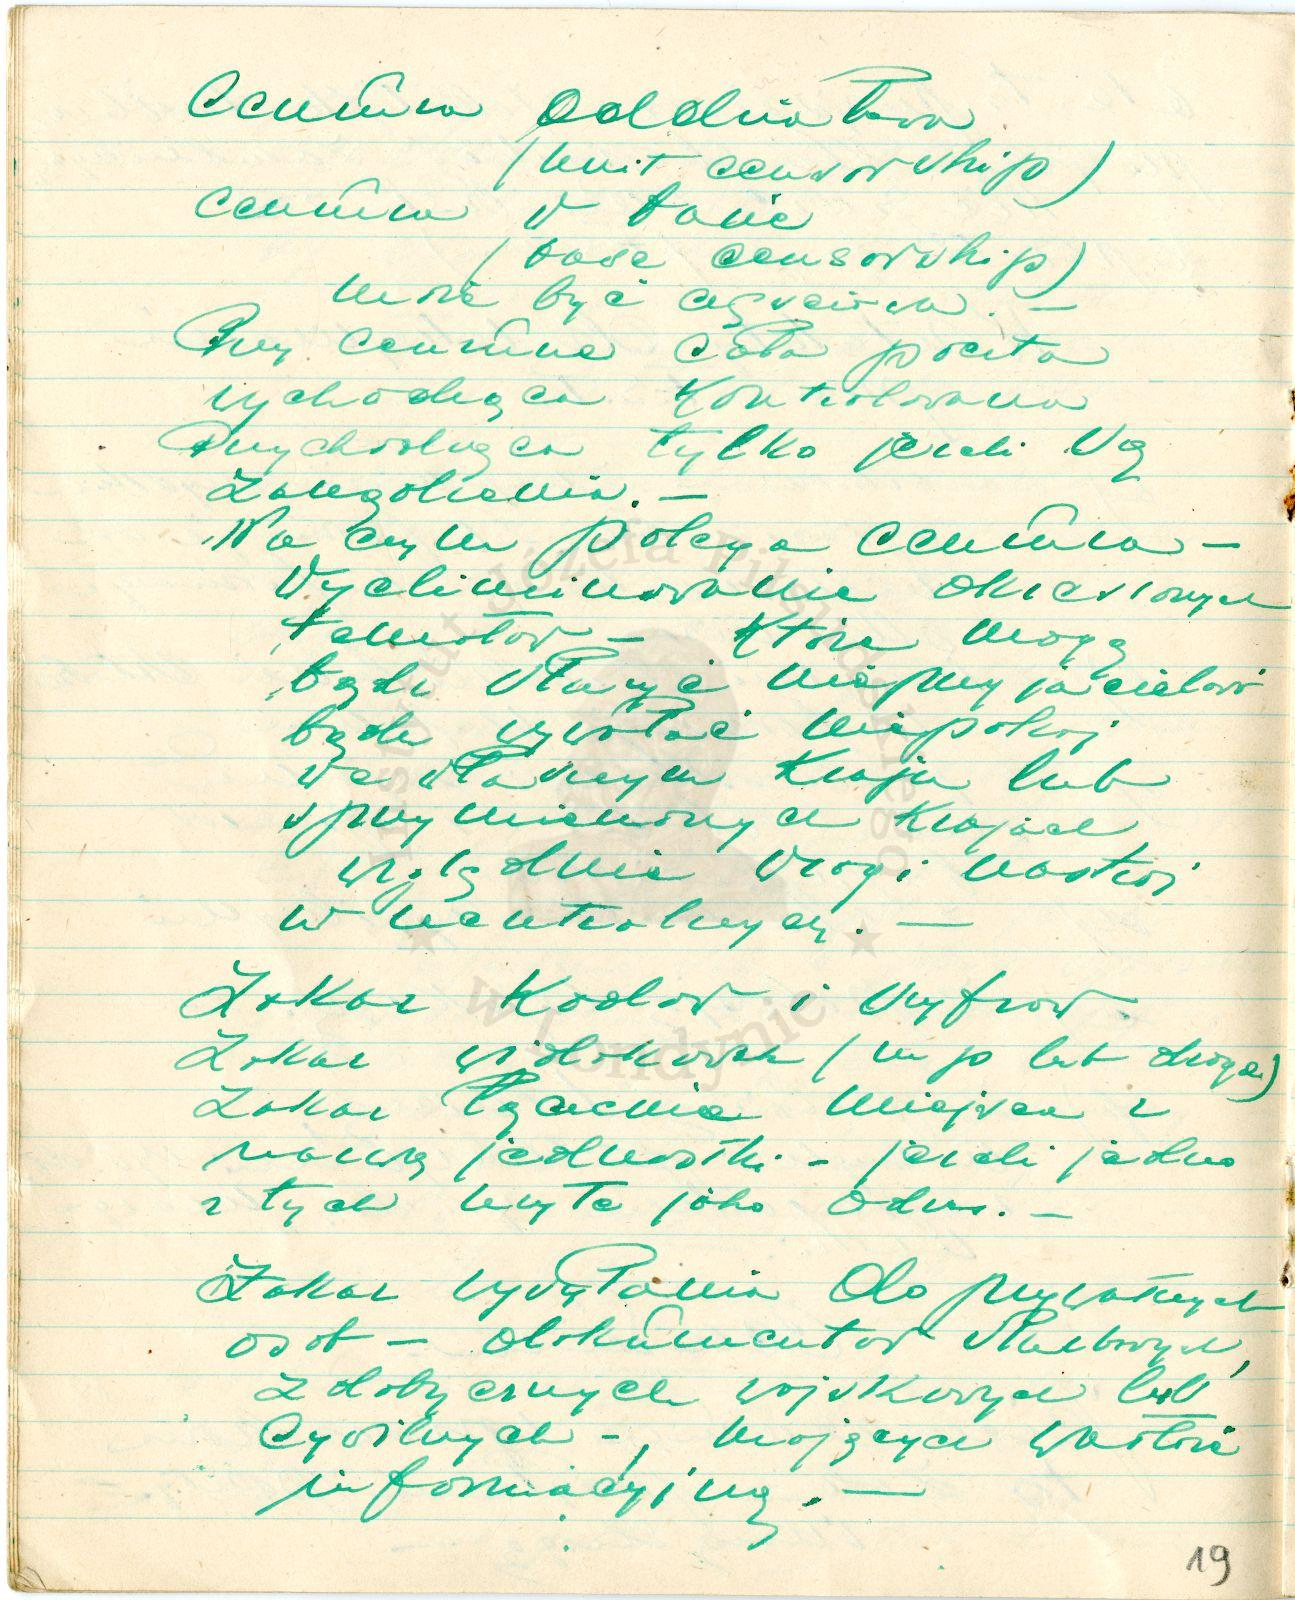 Cenzura Oddziałowa
(unit censorship)
Cenzura w bazie
(base censorship)
może być częściowa. —
Przy cenzurze cała poczta
wychodząca kontrolowana
Przychodząca tylko jeżeli są
zarządzenia. —
Na czym polega cenzura —
Wyeliminowanie określonych
tematów — które mogą
bądź służyć nieprzyjacielowi
bądź wywołać niepokój
we własnym kraju lub
sprzymierzonych krajach
względnie wrogi nastrój
w neutralnych. —
Zakaz kodów i szyfrów
Zakaz widokówek (mp lub droga)
Zakaz łączenia miejsca z
nazwą jednostki — jeżeli jedno
z tych użyte jako adres. —
Zakaz wysyłania do prywatnych
osób — dokumentów służbowych,
zdobycznych wojskowych lub
cywilnych —, mających wartość
informacyjną. —
19
Instytut Józefa Piłsudskiego
w Londynie